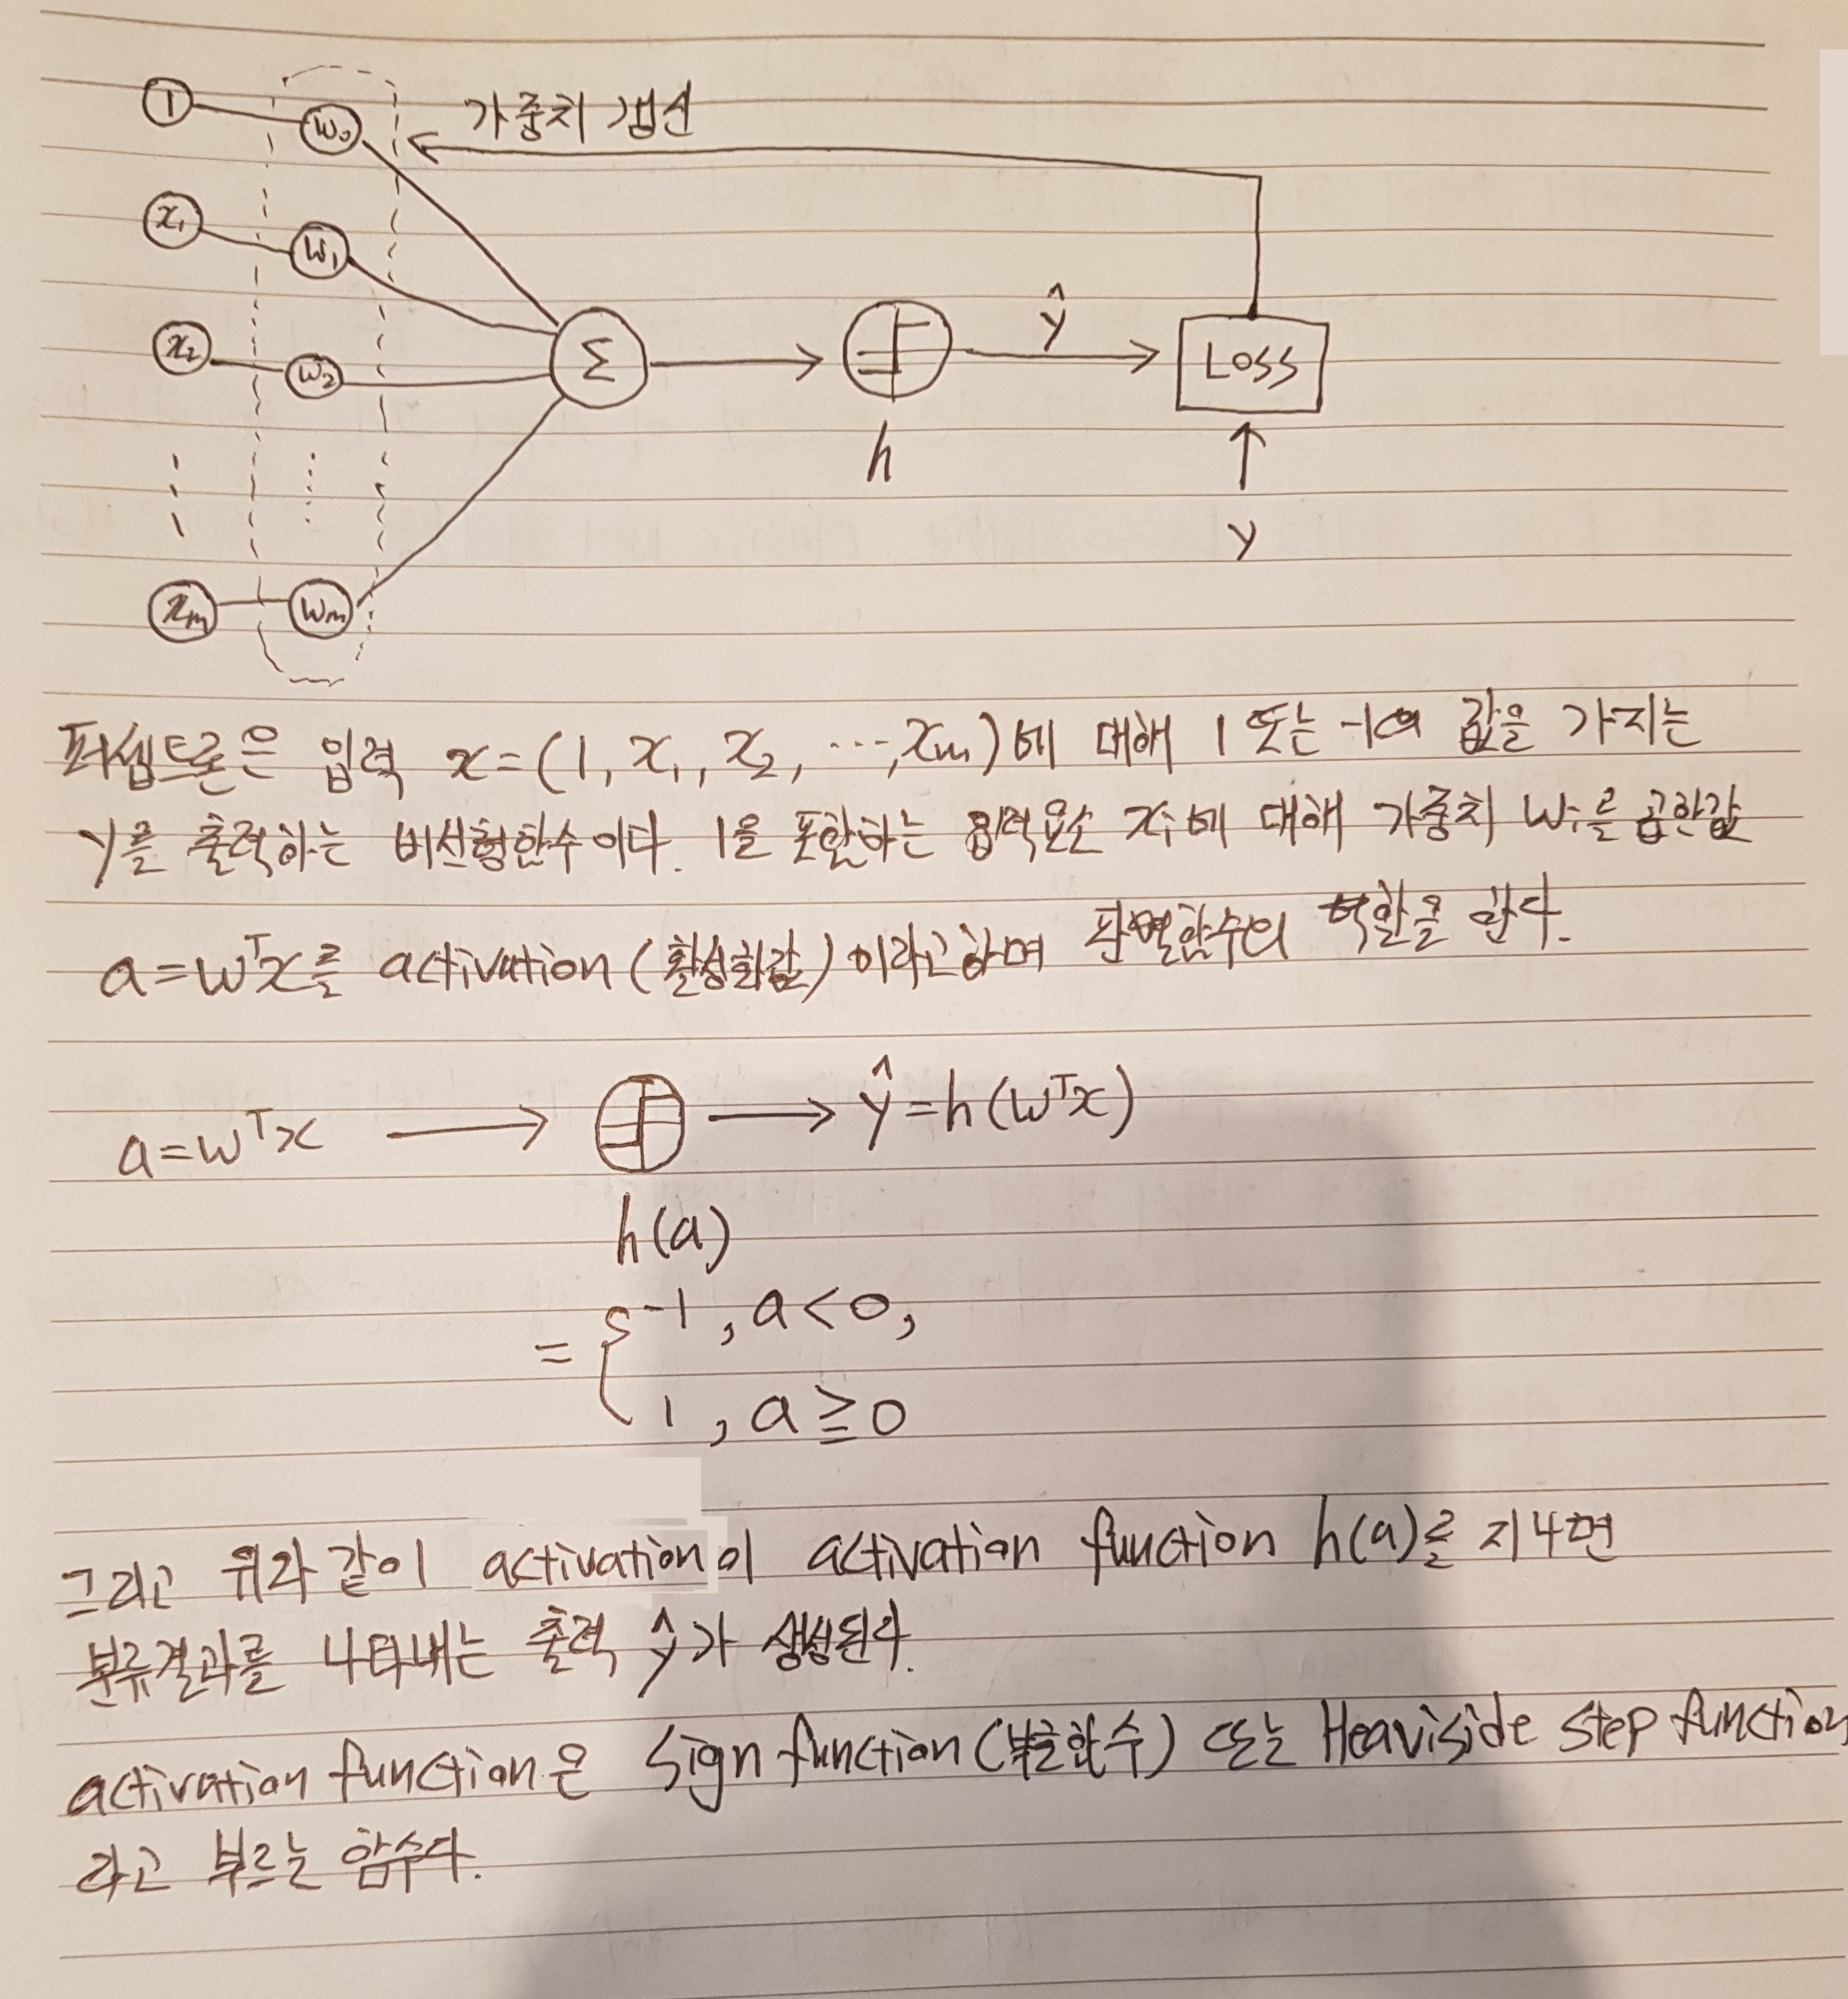 1
w₀
가중치 갱신
x₁
w₁
x₂
w₂
Σ
h
ŷ
LOSS
y
xₘ
wₘ
퍼셉트론은 입력 x=(1, x₁, x₂, ⋯, xₘ)에 대해 1 또는 -1의 값을 가지는
y를 출력하는 비선형함수이다. 1을 포함하는 입력요소 xᵢ에 대해 가중치 wᵢ를 곱한값
a=wᵀx를 activation(활성화값)이라고하며 판별함수의 역할을 한다.
a=wᵀx → → ŷ=h(wᵀx)
h(a)
= { -1, a<0,
1, a≧0
그리고 위와 같이 activation이 activation function h(a)를 지나면
분류결과를 나타내는 출력 ŷ가 생성된다.
activation function은 Sign function(부호함수) 또는 Heaviside step function
라고 부르는 함수다.